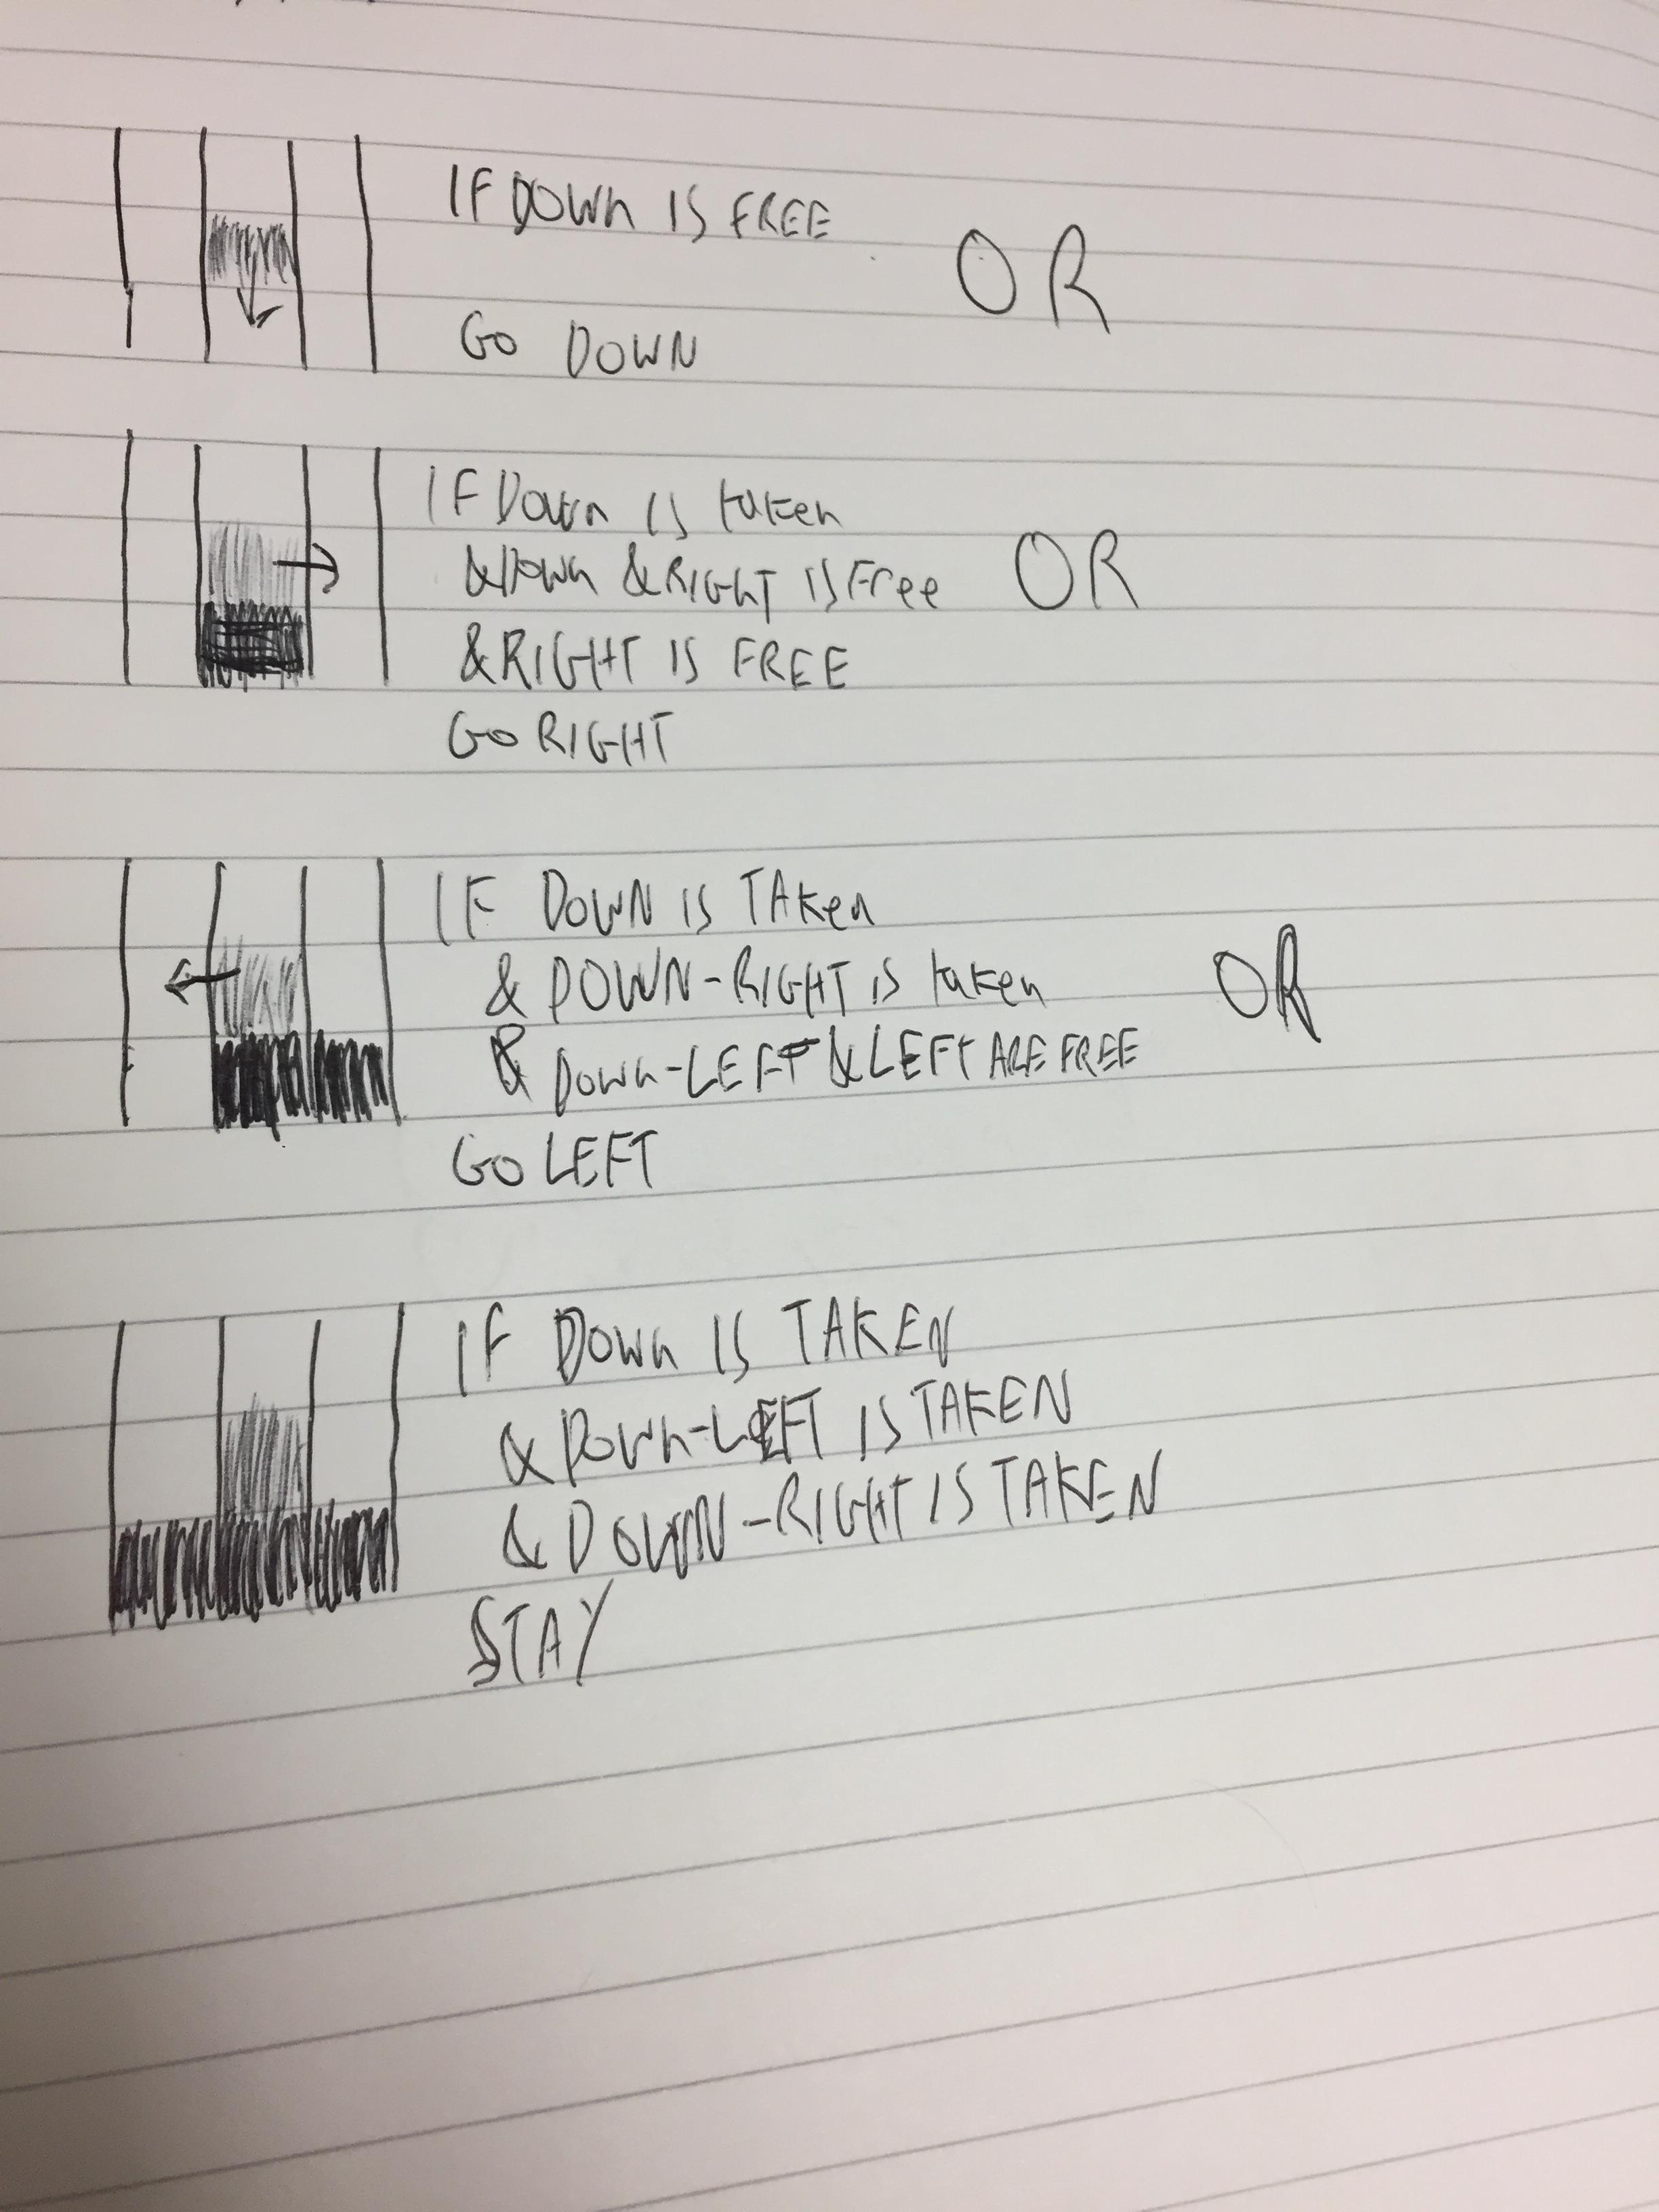 IF DOWN IS FREE
GO DOWN
OR
IF Down is taken
& Down & RIGHT is Free
& RIGHT IS FREE
GO RIGHT
OR
IF DOWN IS TAKen
& DOWN-RIGHT is taken
& Down-LEFT & LEFT ARE FREE
GO LEFT
OR
IF DOwn IS TAKEN
& DOwn-LEFT IS TAKEN
& DOWN-RIGHT IS TAKEN
STAY